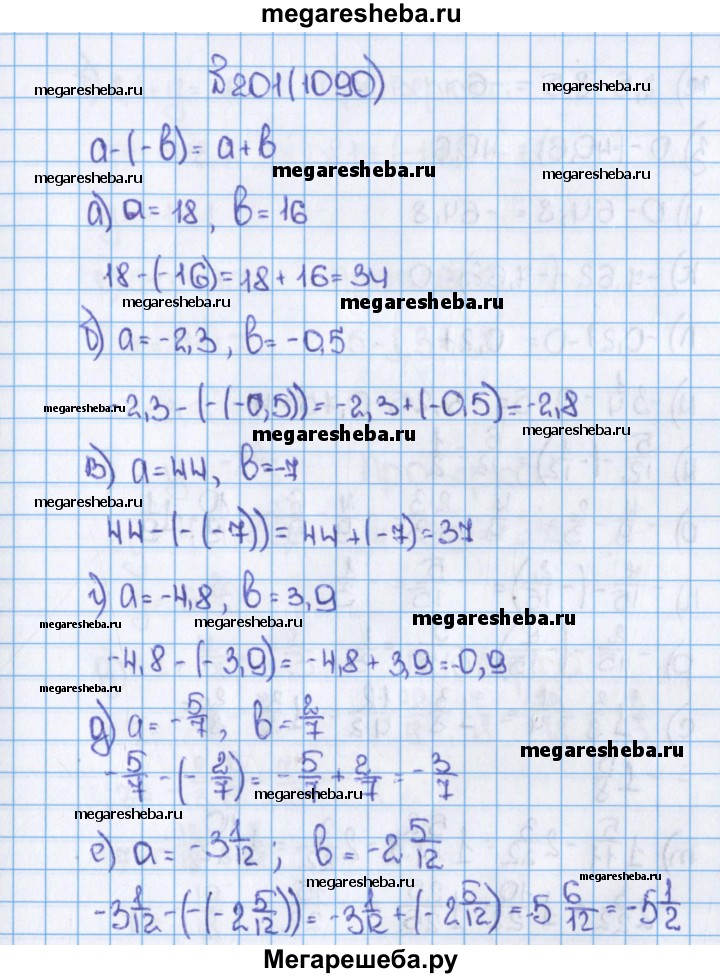 megaresheba.ru
№201(1090)
megaresheba.ru megaresheba.ru
a-(-b)=a+b
megaresheba.ru megaresheba.ru megaresheba.ru
а) a=18, b=16
18-(-16)=18+16=34
megaresheba.ru megaresheba.ru
б) a=-2,3, b=-0,5
megaresheba.ru -2,3-(-(-0,5))=-2,3+(-0,5)=-2,8
megaresheba.ru megaresheba.ru
в) a=44, b=-7
megaresheba.ru
44-(-(-7))=44+(-7)=37
г) a=-4,8, b=3,9
megaresheba.ru megaresheba.ru megaresheba.ru
-4,8-(-3,9)=-4,8+3,9=-0,9
megaresheba.ru
д) a=-5/7, b=2/7
megaresheba.ru
-5/7-(-2/7)=-5/7+2/7=-3/7
megaresheba.ru
megaresheba.ru
е) a=-3 1/12; b=-2 5/12
megaresheba.ru megaresheba.ru
-3 1/12-(-(-2 5/12))=-3 1/12+(-2 5/12)=-5 6/12=-5 1/2
megaresheba.ru
Мегарешеба.ру